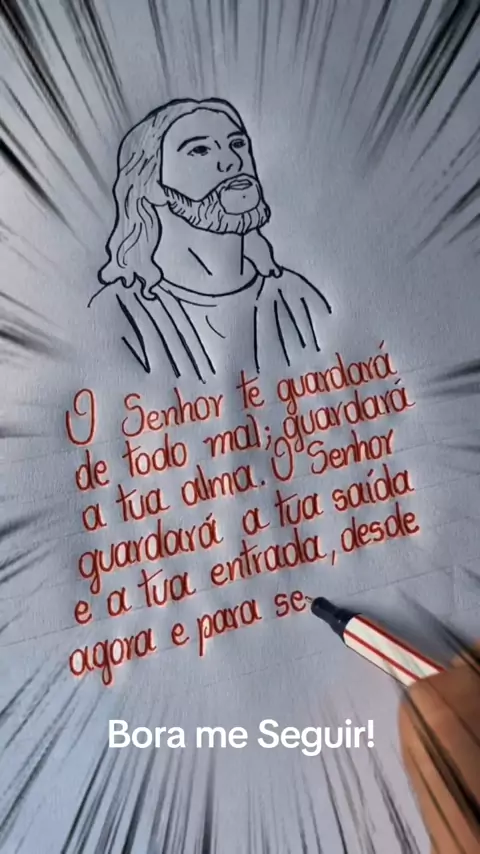 O Senhor te guardará
de todo mal; guardará
a tua alma. O Senhor
guardará a tua saída
e a tua entrada, desde
agora e para se
Bora me Seguir!